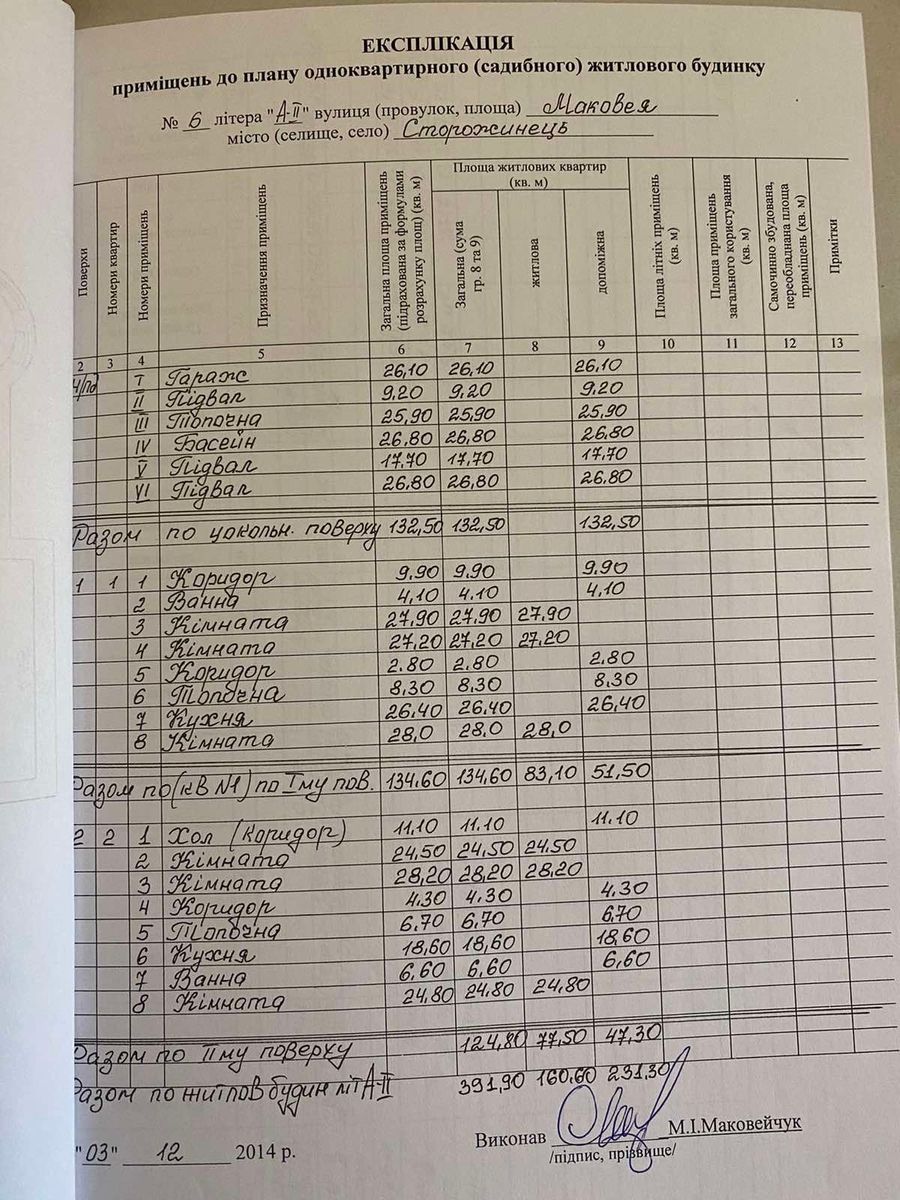 ЕКСПЛІКАЦІЯ
приміщень до плану одноквартирного (садибного) житлового будинку
№ 6 літера "А-ІІ" вулиця (провулок, площа) Маковея
місто (селище, село) Сторожинець
Поверхи
Номери квартир
Номери приміщень
Призначення приміщень
Загальна площа приміщень (підрахована за формулами розрахунку площ) (кв. м)
Площа житлових квартир (кв. м)
Загальна (сума гр. 8 та 9)
житлова
допоміжна
Площа літніх приміщень (кв. м)
Площа приміщень загального користування (кв. м)
Самочинно збудована, переобладнана площа приміщень (кв. м)
Примітки
2 3 4 5 6 7 8 9 10 11 12 13
І Гараж 26,10 26,10 26,10
ІІ Підвал 9,20 9,20 9,20
ІІІ Топочна 25,90 25,90 25,90
IV Басейн 26,80 26,80 26,80
V Підвал 17,70 17,70 17,70
VI Підвал 26,80 26,80 26,80
Разом по цокольн. поверху 132,50 132,50 132,50
1 1 1 Коридор 9.90 9.90 9.90
2 Ванна 4,10 4.10 4.10
3 Кімната 27,90 27,90 27,90
4 Кімната 27,20 27,20 27,20
5 Коридор 2.80 2.80 2.80
6 Топочна 8,30 8,30 8,30
7 Кухня 26,40 26,40 26,40
8 Кімната 28,0 28,0 28,0
Разом по (кв №1) по Іму пов. 134,60 134,60 83,10 51,50
2 2 1 Хол (коридор) 11.10 11.10 11.10
2 Кімната 24,50 24,50 24,50
3 Кімната 28,20 28,20 28,20
4 Коридор 4.30 4.30 4.30
5 Топочна 6,70 6,70 6,70
6 Кухня 18,60 18,60 18,60
7 Ванна 6,60 6,60 6,60
8 Кімната 24,80 24,80 24,80
Разом по ІІму поверху 124,80 77,50 47,30
Разом по житлов будин літ А-ІІ 391,90 160,60 231,30
Виконав М.І.Маковейчук
/підпис, прізвище/
"03" 12 2014 р.